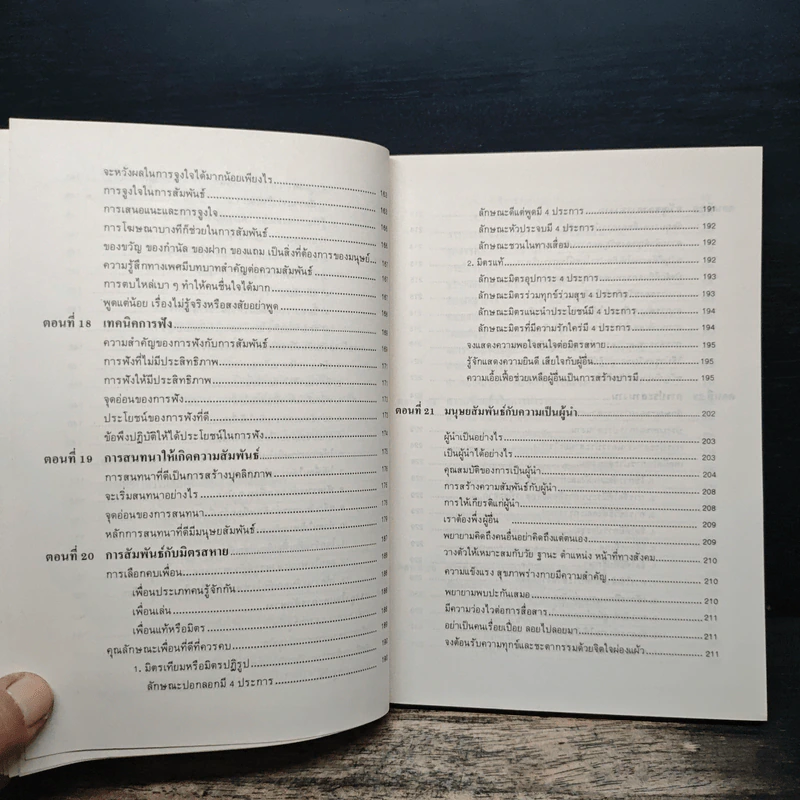 จะหวังผลในการจูงใจได้มากน้อยเพียงไร
การจูงใจในการสัมพันธ์
การเสนอแนะและการจูงใจ
การโฆษณาบางทีก็ช่วยในการสัมพันธ์
ของขวัญ ของกำนัล ของฝาก ของแถม เป็นสิ่งที่ต้องการของมนุษย์
ความรู้สึกทางเพศมีบทบาทสำคัญต่อความสัมพันธ์
การตบไหล่เบา ๆ ทำให้คนชื่นใจได้มาก
พูดแต่น้อย เรื่องไม่รู้จริงหรือสงสัยอย่าพูด
ตอนที่ 18 เทคนิคการฟัง
ความสำคัญของการฟังกับการสัมพันธ์
การฟังที่ไม่มีประสิทธิภาพ
การฟังให้มีประสิทธิภาพ
จุดอ่อนของการฟัง
ประโยชน์ของการฟังที่ดี
ข้อพึงปฏิบัติให้ได้ประโยชน์ในการฟัง
ตอนที่ 19 การสนทนาให้เกิดความสัมพันธ์
การสนทนาที่ดีเป็นการสร้างบุคลิกภาพ
จะเริ่มสนทนาอย่างไร
จุดอ่อนของการสนทนา
หลักการสนทนาที่ดีมีมนุษยสัมพันธ์
ตอนที่ 20 การสัมพันธ์กับมิตรสหาย
การเลือกคบเพื่อน
เพื่อนประเภทคนรู้จักกัน
เพื่อนเล่น
เพื่อนแท้หรือมิตร
คุณลักษณะเพื่อนที่ดีที่ควรคบ
1. มิตรเทียมหรือมิตรปฏิรูป
ลักษณะปอกลอกมี 4 ประการ
ลักษณะดีแต่พูดมี 4 ประการ 191
ลักษณะหัวประจบมี 4 ประการ 192
ลักษณะชวนในทางเสื่อม 192
2. มิตรแท้ 192
ลักษณะมิตรอุปการะ 4 ประการ 193
ลักษณะมิตรร่วมทุกข์ร่วมสุข 4 ประการ 193
ลักษณะมิตรแนะนำประโยชน์มี 4 ประการ 194
ลักษณะมิตรที่มีความรักใคร่มี 4 ประการ 194
จงแสดงความพอใจสนใจต่อมิตรสหาย 195
รู้จักแสดงความยินดี เสียใจกับผู้อื่น 195
ความเอื้อเฟื้อช่วยเหลือผู้อื่นเป็นการสร้างบารมี 195
ตอนที่ 21 มนุษยสัมพันธ์กับความเป็นผู้นำ 202
ผู้นำเป็นอย่างไร 203
เป็นผู้นำได้อย่างไร 203
คุณสมบัติของการเป็นผู้นำ 204
การสร้างความสัมพันธ์กับผู้นำ 208
การให้เกียรติแก่ผู้นำ 208
เราต้องพึ่งผู้อื่น 209
พยายามคิดถึงคนอื่นอย่าคิดถึงแต่ตนเอง 209
วางตัวให้เหมาะสมกับวัย ฐานะ ตำแหน่ง หน้าที่ทางสังคม 210
ความแข็งแรง สุขภาพร่างกายมีความสำคัญ 210
พยายามพบปะกันเสมอ 210
มีความว่องไวต่อการสื่อสาร 211
อย่าเป็นคนเรื่อยเปื่อย ลอยไปลอยมา 211
จงต้อนรับความทุกข์และชะตากรรมด้วยจิตใจผ่องแผ้ว 211